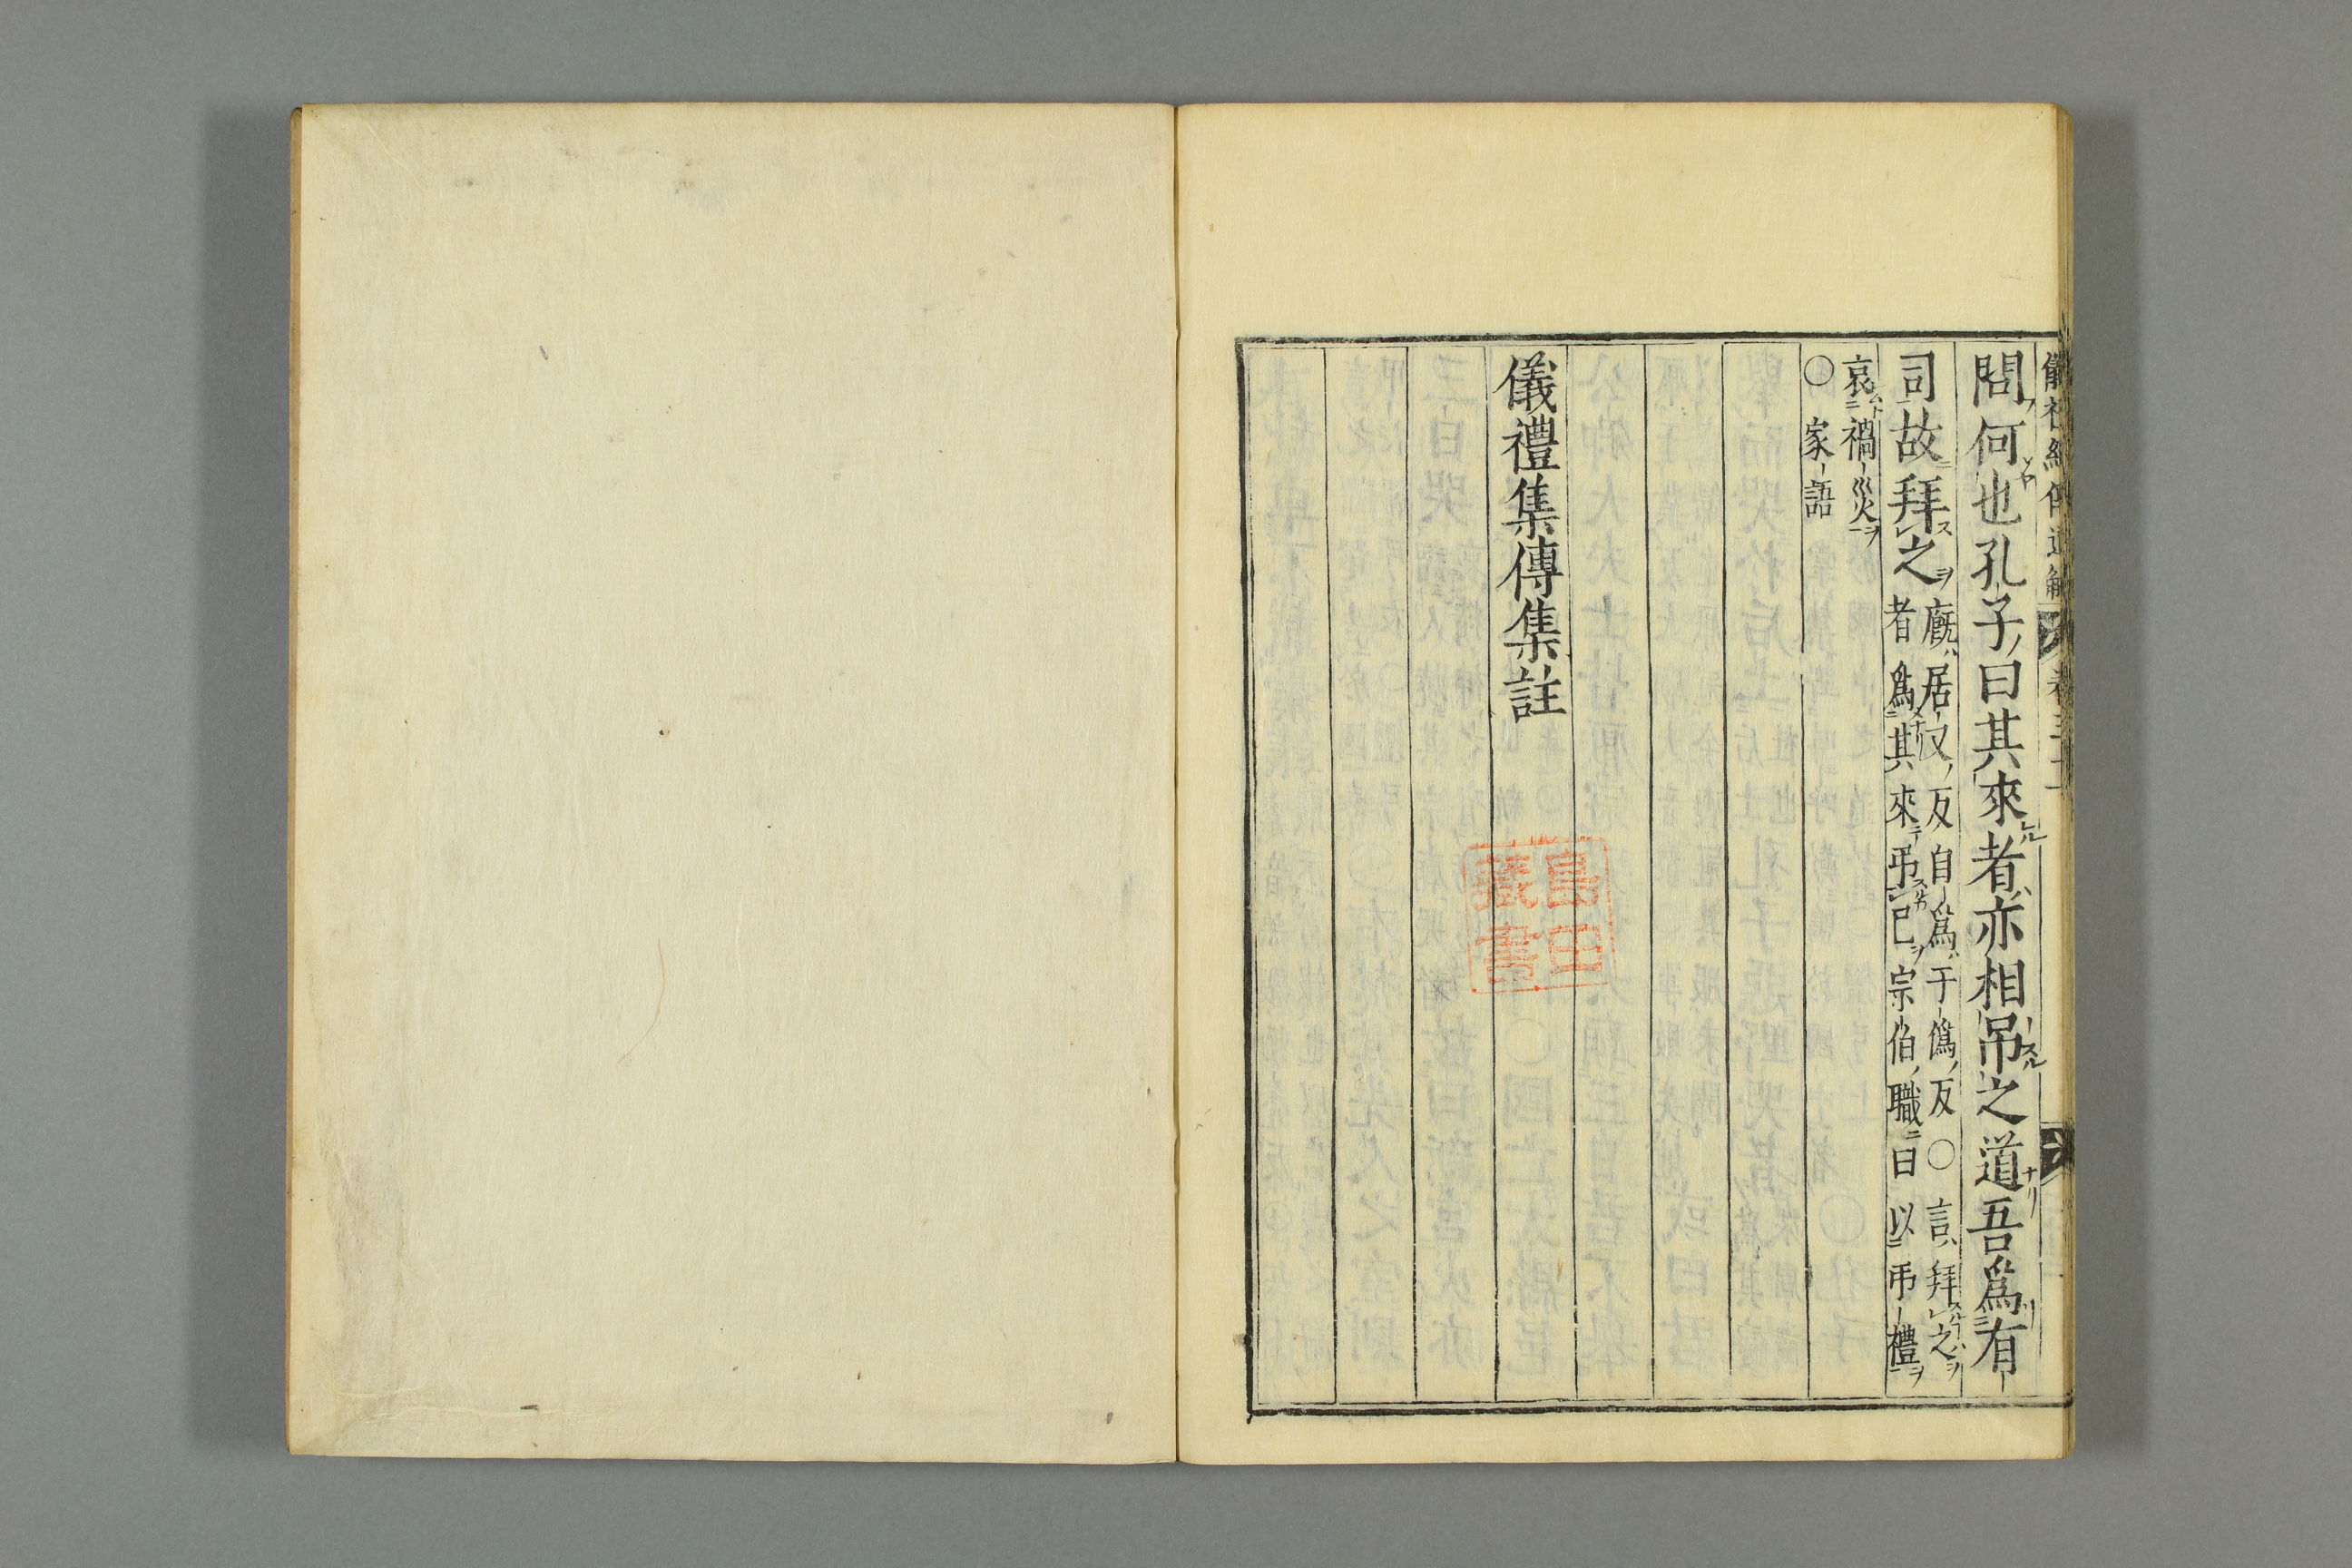 儀禮經傳通解
問何也孔子曰其來者亦相吊之道吾爲有
司故拜之
廐居又反自爲于僞反○言拜之
者爲其來弔己宗伯職曰以弔禮
哀禍災
○家語
儀禮集傳集註
藏書